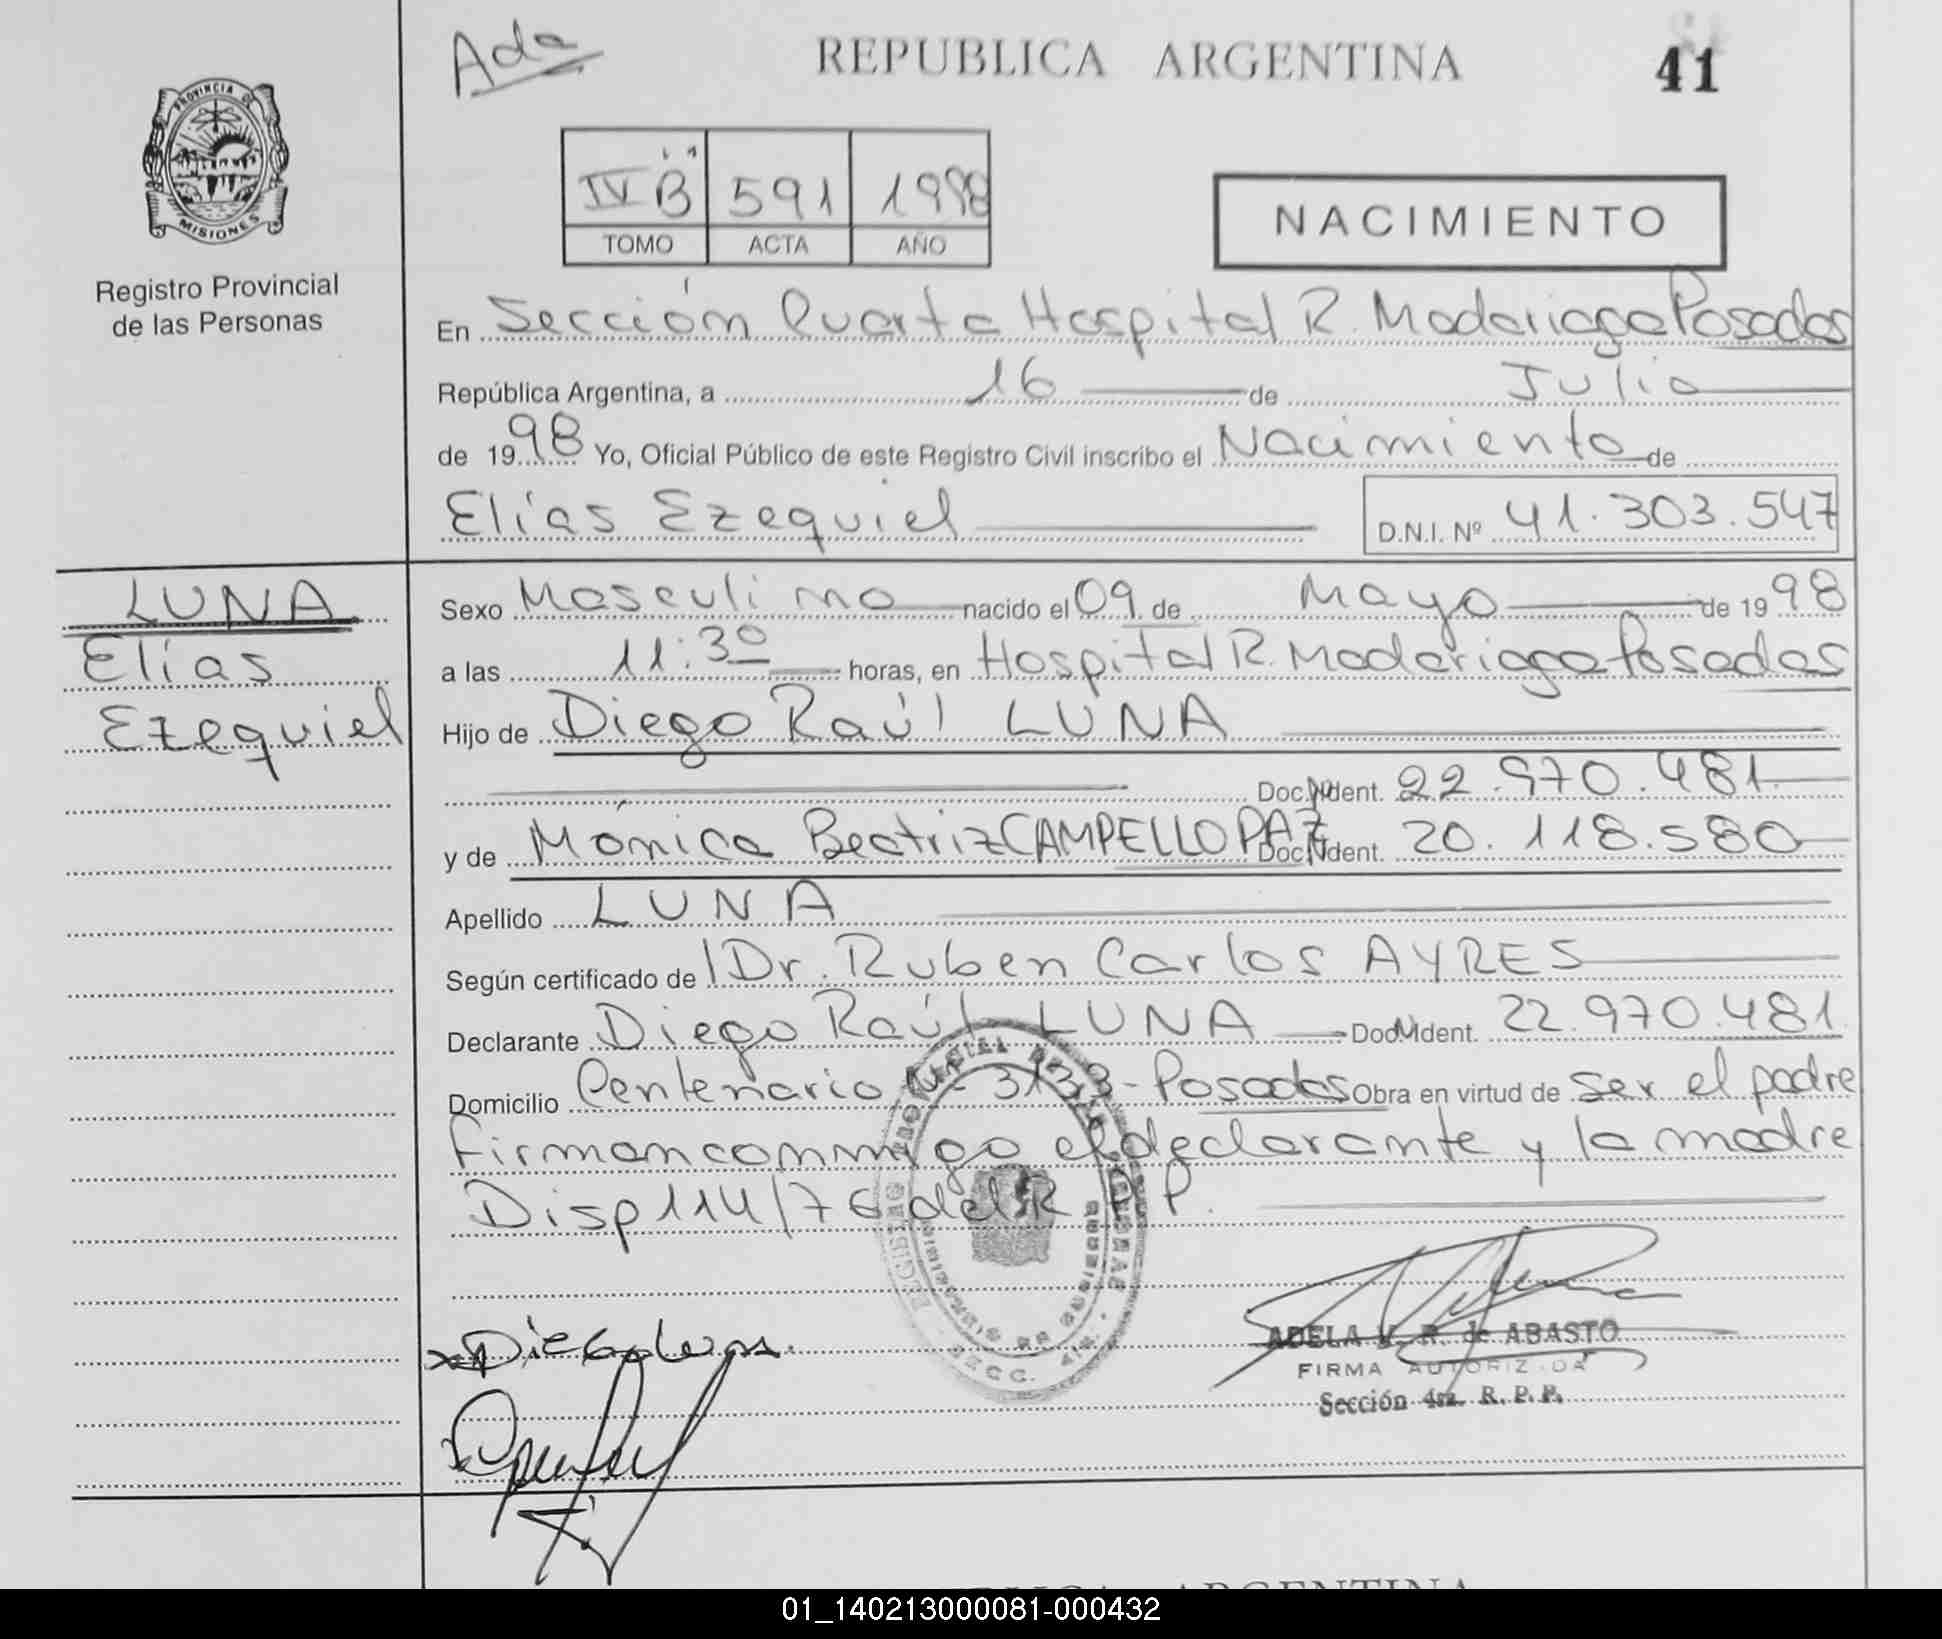 Ada
REPUBLICA ARGENTINA
41
PROVINCIA DE
MISIONES
Registro Provincial
de las Personas
IV B 591 1998
TOMO ACTA AÑO
NACIMIENTO
En Sección Cuarta Hospital R. Madariaga Posadas
República Argentina, a 16 de Julio
de 1998 Yo, Oficial Público de este Registro Civil inscribo el Nacimiento de
Elías Ezequiel D.N.I. Nº 41.303.547
LUNA
Elías
Ezequiel
Sexo Masculino nacido el 09 de Mayo de 1998
a las 11:30 horas, en Hospital R. Madariaga Posadas
Hijo de Diego Raúl LUNA
Doc. Ident. 22.970.481
y de Mónica Beatriz CAMPELLO PAZ Doc. Ident. 20.118.580
Apellido LUNA
Según certificado de Dr. Ruben Carlos AYRES
Declarante Diego Raúl LUNA Doc. Ident. 22.970.481
Domicilio Centenario 3133 - Posadas Obra en virtud de ser el padre
firman conmigo el declarante y la madre
Disp 114/76 del R P P.
Diego Luna.
ADELA V. R. de ABASTO
FIRMA AUTORIZADA
Sección 4ta. R. P. P.
01_140213000081-000432